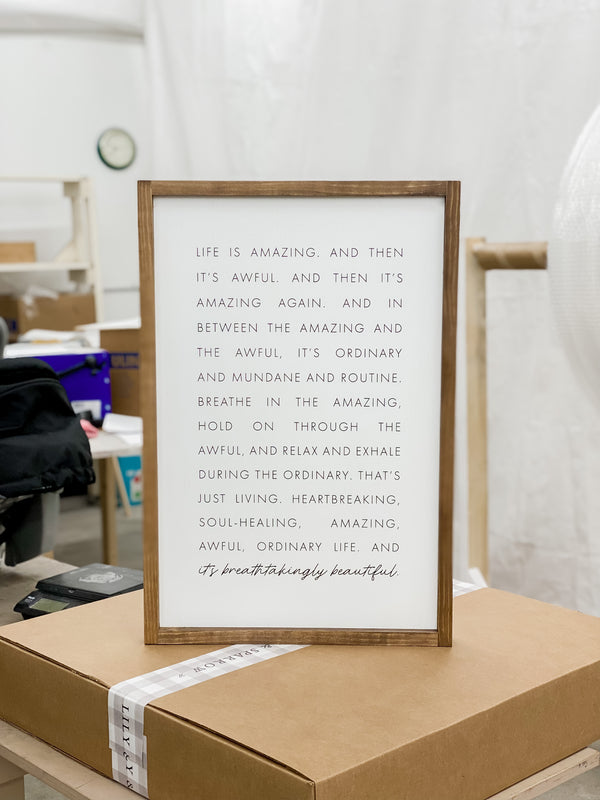 LIFE IS AMAZING. AND THEN
IT'S AWFUL. AND THEN IT'S
AMAZING AGAIN. AND IN
BETWEEN THE AMAZING AND
THE AWFUL, IT'S ORDINARY
AND MUNDANE AND ROUTINE.
BREATHE IN THE AMAZING,
HOLD ON THROUGH THE
AWFUL, AND RELAX AND EXHALE
DURING THE ORDINARY. THAT'S
JUST LIVING. HEARTBREAKING,
SOUL-HEALING, AMAZING,
AWFUL, ORDINARY LIFE. AND
it's breathtakingly beautiful.
& SPARROW
LILY & S